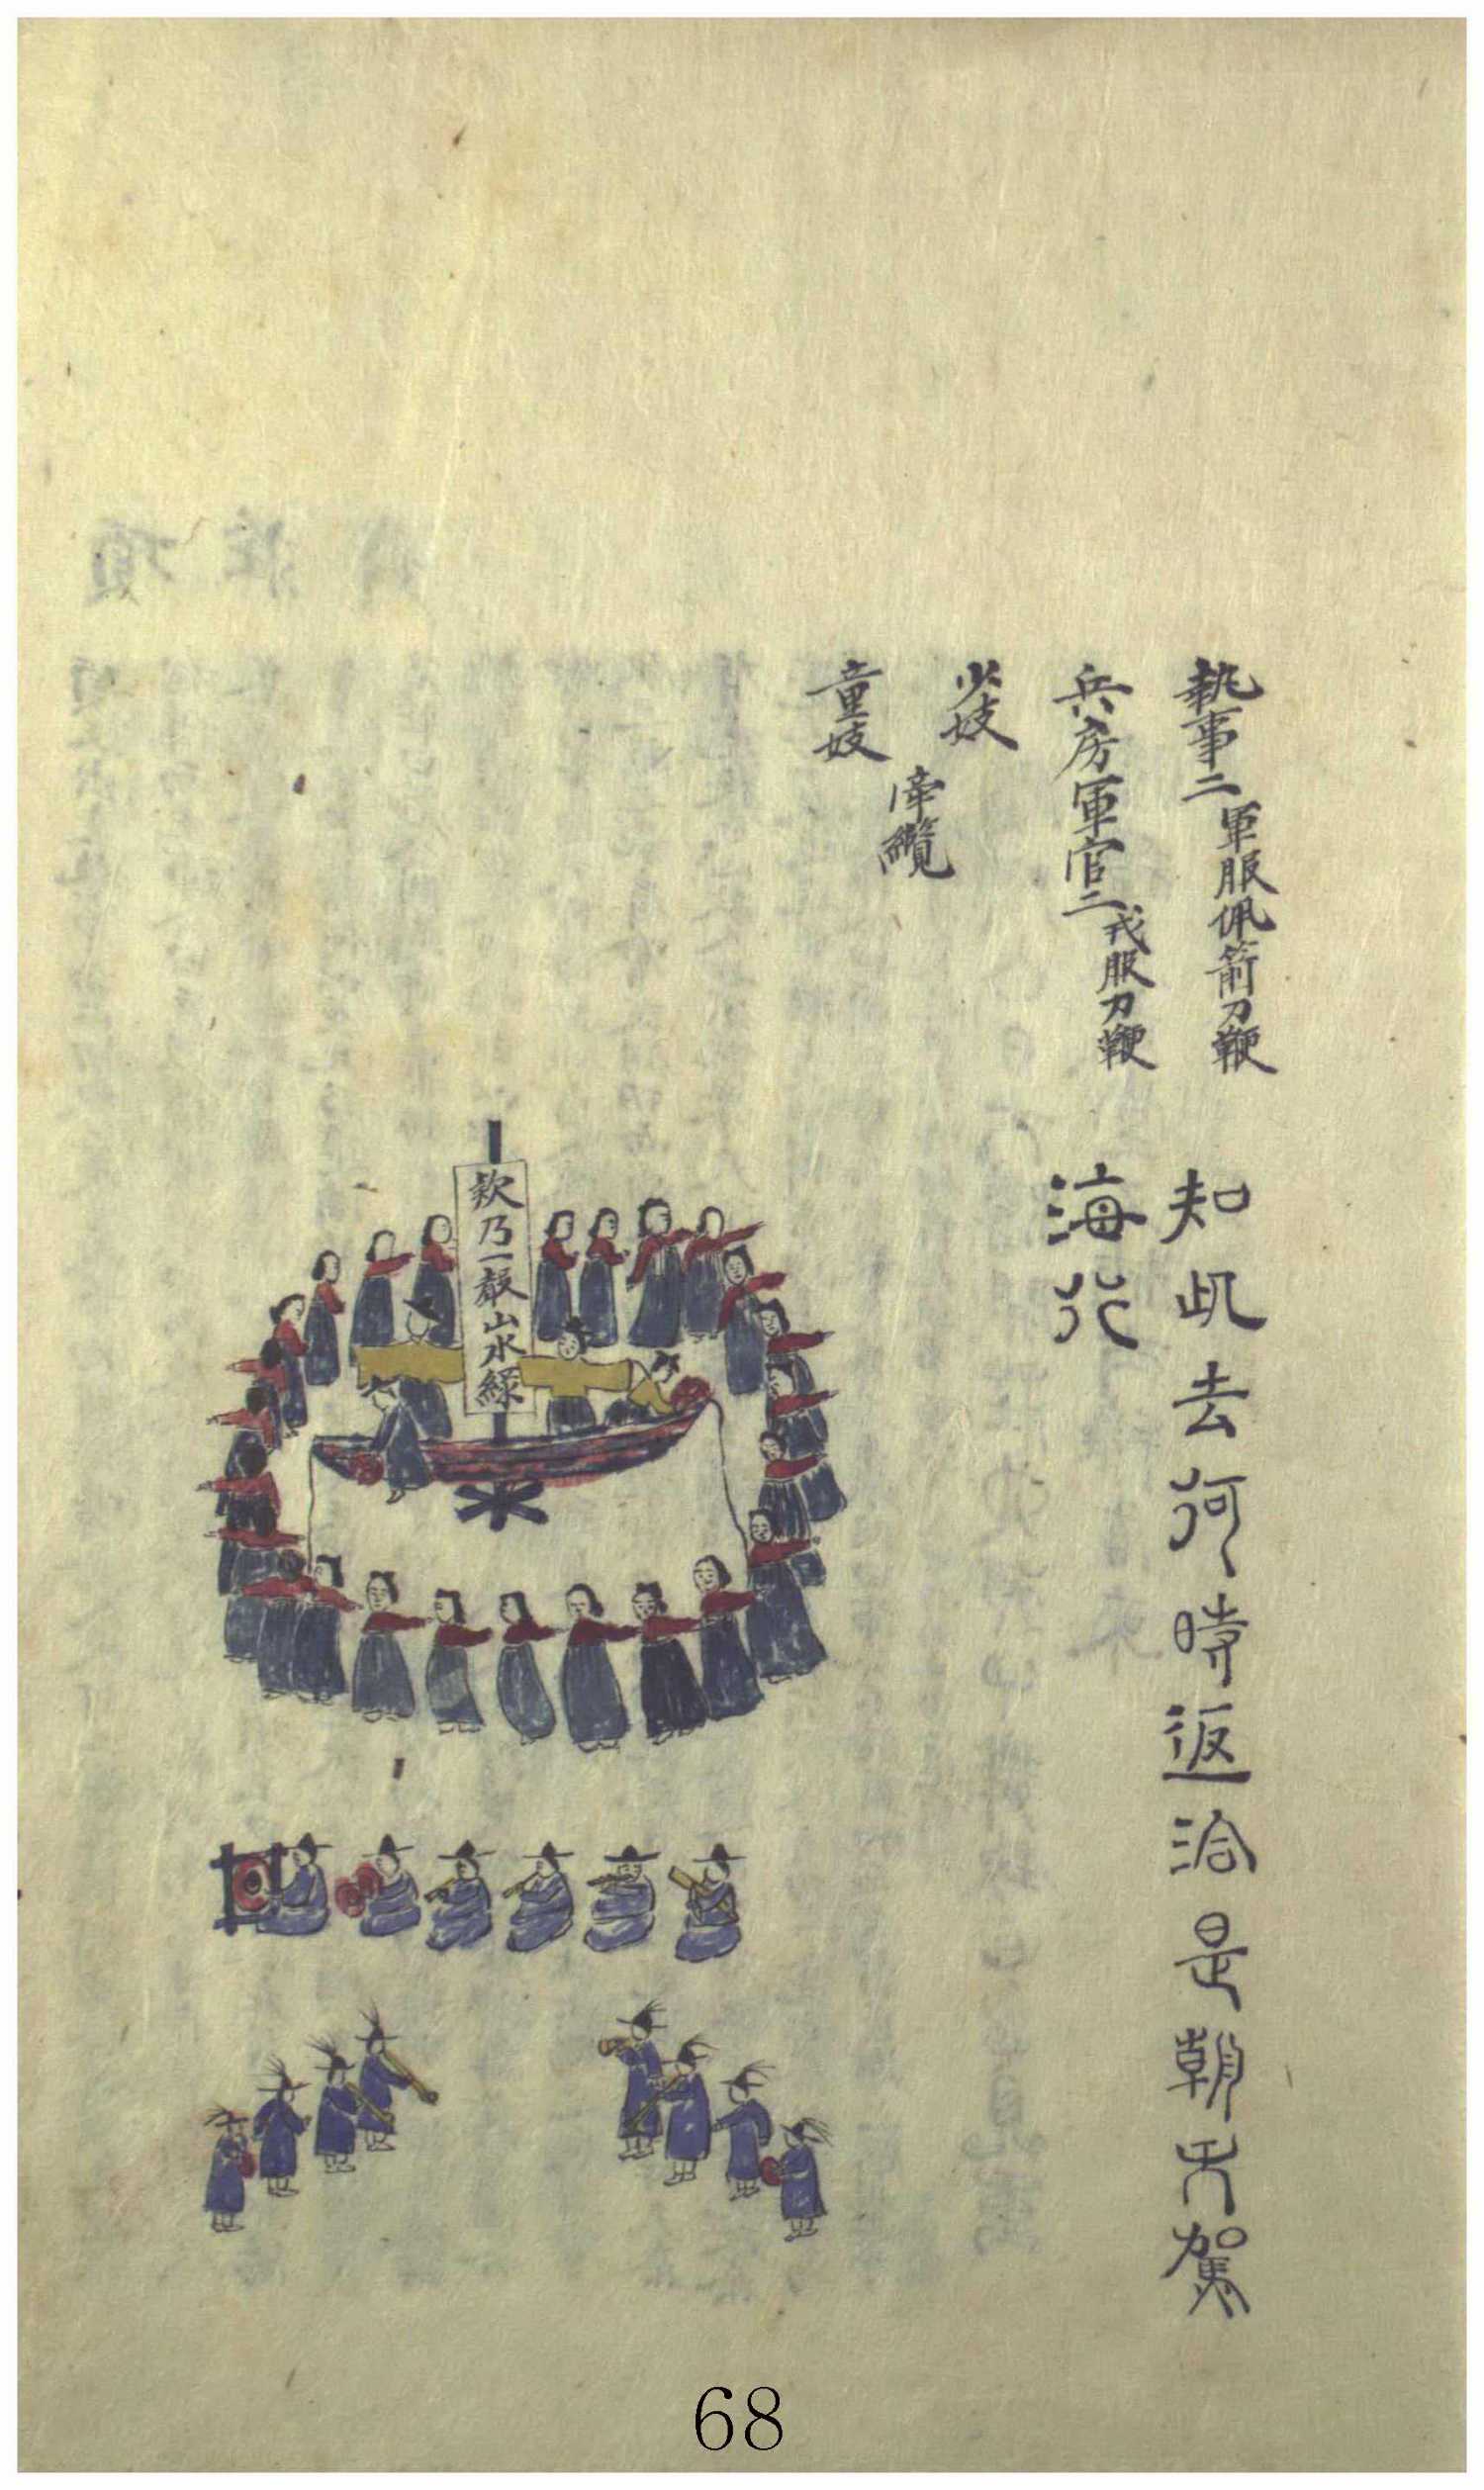 執事二 軍服佩箭刀鞭
兵房軍官二 戎服刀鞭
少妓
童妓
牽纜
知此去何、時返洽是朝天駕
海行
欸乃一聲山水綠
68